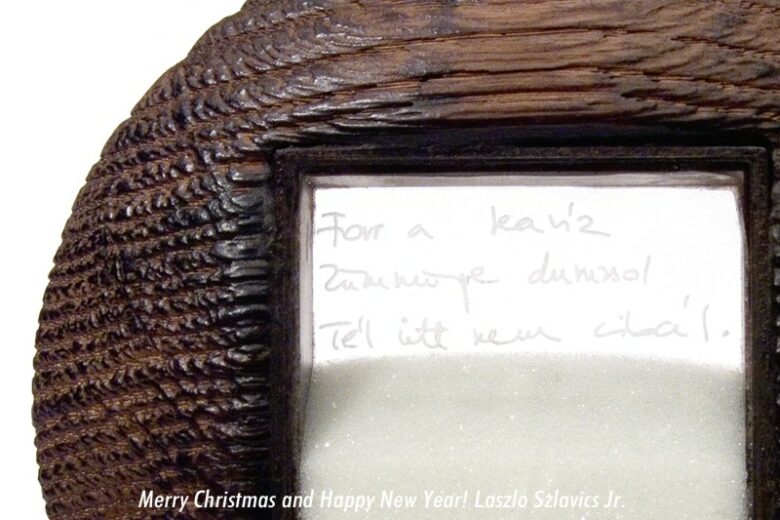 Forr a kávíz
Zümmögve dumásol
Tél itt nem cibál.
Merry Christmas and Happy New Year! Laszlo Szlavics Jr.